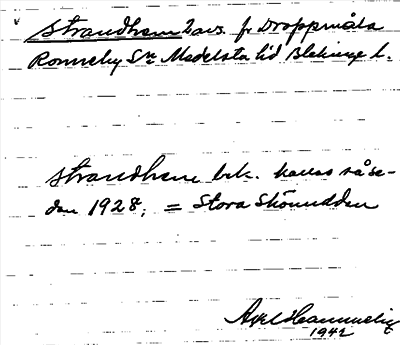 Strandhem 2 avs. fr Droppmåla
Ronneby Sn Medelsta hd Blekinge l.
Strandhem bek. kallas så se-
dan 1928, = Stora Skönudden
Axel
1942